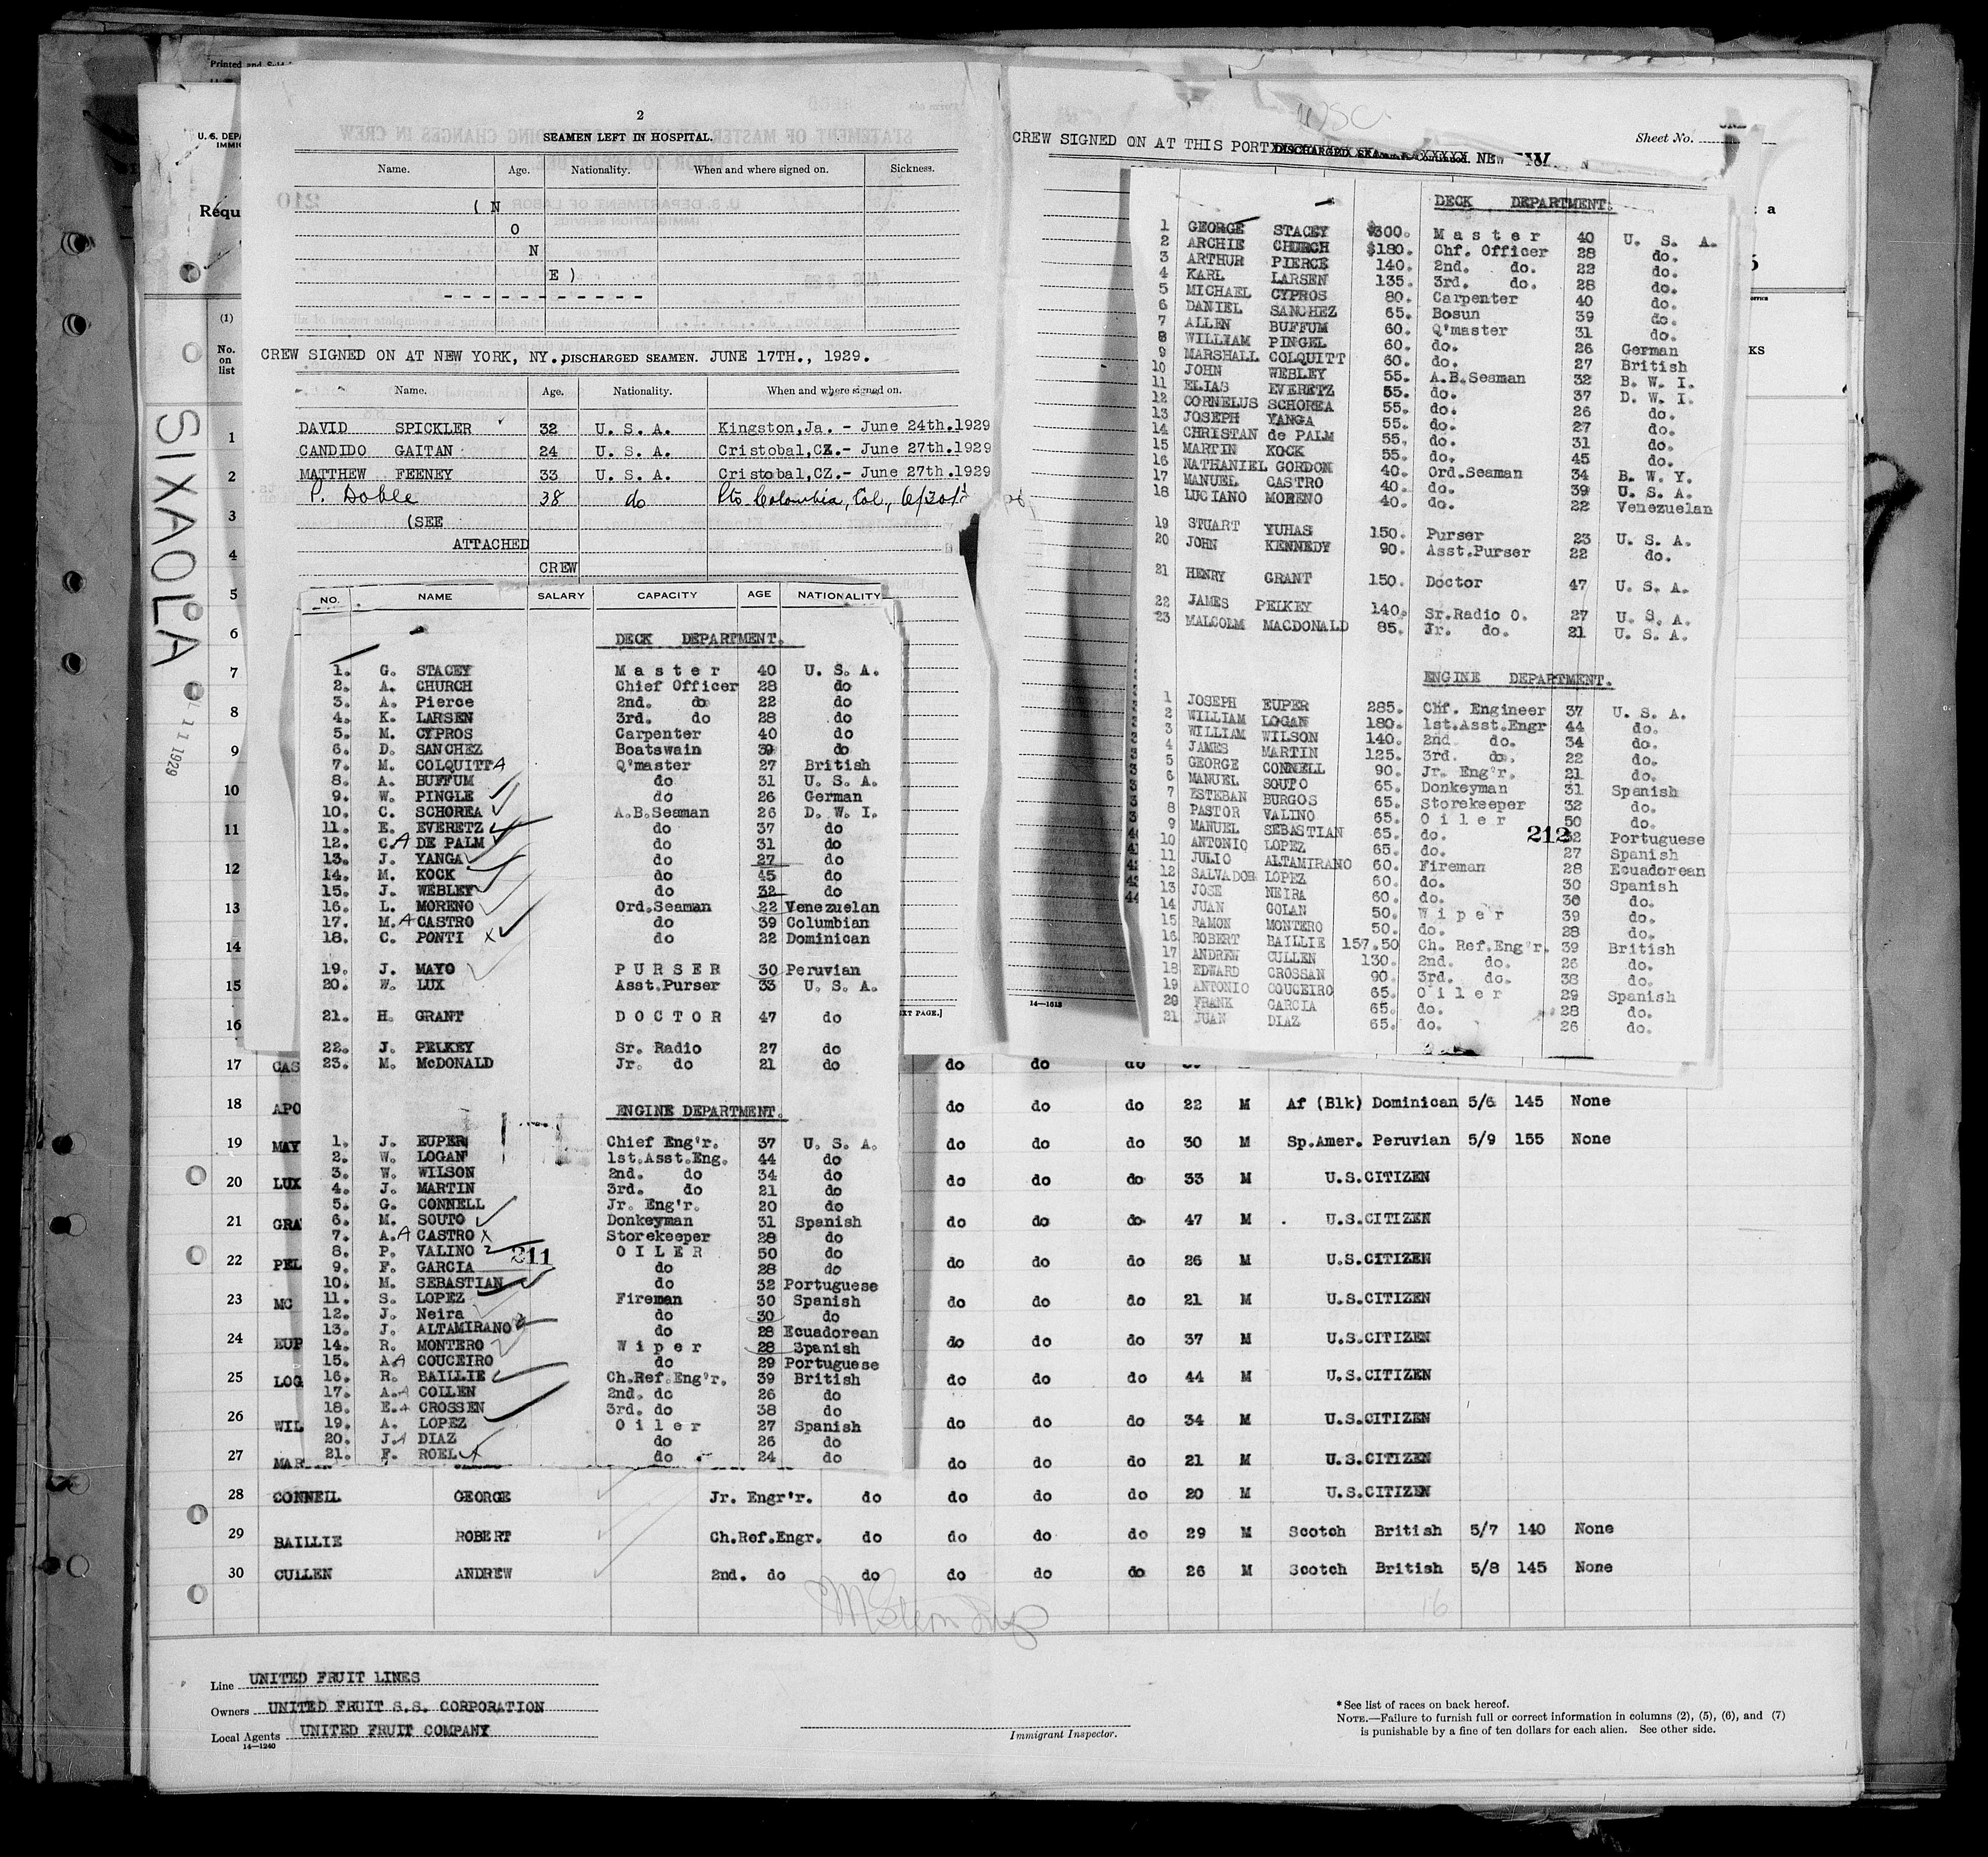 Printed and Sold
U. S. DEPA
IMMIG
Requ
(1)
No.
on
list
SIXAOLA
11 1929
2
SEAMEN LEFT IN HOSPITAL.
Name. Age. Nationality. When and where signed on. Sickness.
( N
O
N
E )
CREW SIGNED ON AT NEW YORK, NY., DISCHARGED SEAMEN. JUNE 17TH., 1929.
Name. Age. Nationality. When and where signed on.
DAVID SPICKLER 32 U. S. A. Kingston,Ja. - June 24th.1929
CANDIDO GAITAN 24 U. S. A. Cristobal,CZ.- June 27th.1929
MATTHEW FEENEY 33 U. S. A. Cristobal,CZ.- June 27th.1929
P. Doble 38 do Pto Colombia, Col.,
(SEE
ATTACHED
CREW
NO. NAME SALARY CAPACITY AGE NATIONALITY
DECK DEPARTMENT.
1. G. STACEY Master 40 U. S. A.
2. A. CHURCH Chief Officer 28 do
3. A. Pierce 2nd. do 22 do
4. K. LARSEN 3rd. do 28 do
5. M. CYPROS Carpenter 40 do
6. D. SANCHEZ Boatswain 39 do
7. M. COLQUITT A Q'master 27 British
8. A. BUFFUM do 31 U. S. A.
9. W. PINGLE do 26 German
10. C. SCHOREA A.B.Seaman 26 D. W. I.
11. E. EVERETZ do 37 do
12. C. A DE PALM do 31 do
13. J. YANGA do 27 do
14. M. KOCK do 45 do
15. J. WEBLEY do 32 do
16. L. MORENO Ord.Seaman 22 Venezuelan
17. M. A CASTRO do 39 Columbian
18. C. PONTI x do 22 Dominican
19. J. MAYO PURSER 30 Peruvian
20. W. LUX Asst.Purser 33 U. S. A.
21. H. GRANT DOCTOR 47 do
22. J. PELKEY Sr. Radio 27 do
23. M. McDONALD Jr. do 21 do
ENGINE DEPARTMENT.
1. J. EUPER Chief Eng'r. 37 U. S. A.
2. W. LOGAN 1st.Asst.Eng. 44 do
3. W. WILSON 2nd. do 34 do
4. J. MARTIN 3rd. do 21 do
5. G. CONNELL Jr. Eng'r. 20 do
6. M. SOUTO Donkeyman 31 Spanish
7. A. A CASTRO x Storekeeper 28 do
8. P. VALINO OILER 50 do
211
9. F. GARCIA do 28 do
10. M. SEBASTIAN do 32 Portuguese
11. S. LOPEZ Fireman 30 Spanish
12. J. Neira do 30 do
13. J. ALTAMIRANO do 28 Ecuadorean
14. R. MONTERO Wiper 28 Spanish
15. A. A COUCEIRO do 29 Portuguese
16. R. BAILLIE Ch.Ref.Eng'r. 39 British
17. A. A COLLEN 2nd. do 26 do
18. E. A CROSSEN 3rd. do 38 do
19. A. LOPEZ Oiler 27 Spanish
20. J. A DIAZ do 26 do
21. F. ROEL x do 24 do
CREW SIGNED ON AT THIS PORT NEW
Sheet No.
DECK DEPARTMENT.
1 GEORGE STACEY $300. Master 40 U. S. A.
2 ARCHIE CHURCH $180. Chf. Officer 28 do.
3 ARTHUR PIERCE 140. 2nd. do. 22 do.
4 KARL LARSEN 135. 3rd. do. 28 do.
5 MICHAEL CYPROS 80. Carpenter 40 do.
6 DANIEL SANCHEZ 65. Bosun 39 do.
7 ALLEN BUFFUM 60. Q'master 31 do.
8 WILLIAM PINGEL 60. do. 26 German
9 MARSHALL COLQUITT 60. do. 27 British
10 JOHN WEBLEY 55. A.B.Seaman 32 B. W. I.
11 ELIAS EVERETZ 55. do. 37 D. W. I.
12 CORNELUS SCHOREA 55. do. 26 do.
13 JOSEPH YANGA 55. do. 27 do.
14 CHRISTAN de PALM 55. do. 31 do.
15 MARTIN KOCK 55. do. 45 do.
16 NATHANIEL GORDON 40. Ord.Seaman 34 B. W. Y.
17 MANUEL CASTRO 40. do. 39 U. S. A.
18 LUCIANO MORENO 40. do. 22 Venezuelan
19 STUART YUHAS 150. Purser 23 U. S. A.
20 JOHN KENNEDY 90. Asst.Purser 22 do.
21 HENRY GRANT 150. Doctor 47 U. S. A.
22 JAMES PELKEY 140. Sr.Radio O. 27 U. S. A.
23 MALCOLM MACDONALD 85. Jr. do. 21 U. S. A.
ENGINE DEPARTMENT.
1 JOSEPH EUPER 285. Chf. Engineer 37 U. S. A.
2 WILLIAM LOGAN 180. 1st.Asst.Engr 44 do.
3 WILLIAM WILSON 140. 2nd do. 34 do.
4 JAMES MARTIN 125. 3rd. do. 22 do.
5 GEORGE CONNELL 90. Jr. Eng'r. 21 do.
6 MANUEL SOUTO 65. Donkeyman 31 Spanish
7 ESTEBAN BURGOS 65. Storekeeper 32 do.
8 PASTOR VALINO 65. Oiler 50 do.
9 MANUEL SEBASTIAN 65. do. 32 Portuguese
212
10 ANTONIO LOPEZ 65. do. 27 Spanish
11 JULIO ALTAMIRANO 60. Fireman 28 Ecuadorean
12 SALVADOR LOPEZ 60. do. 30 Spanish
13 JOSE NEIRA 60. do. 30 do.
14 JUAN GOLAN 50. Wiper 39 do.
15 RAMON MONTERO 50. do. 28 do.
16 ROBERT BAILLIE 157.50 Ch. Ref.Eng'r. 39 British
17 ANDREW CULLEN 130. 2nd. do. 26 do.
18 EDWARD CROSSAN 90. 3rd. do. 38 do.
19 ANTONIO COUCEIRO 65. Oiler 29 Spanish
20 FRANK GARCIA 65. do. 28 do.
21 JUAN DIAZ 65. do. 26 do.
14—1613
EXT PAGE.]
1
2
3
4
5
6
7
8
9
10
11
12
13
14
15
16
17 CAS do do do
18 APO do do do 22 M Af (Blk) Dominican 5/6 145 None
19 MAY do do do 30 M Sp.Amer. Peruvian 5/9 155 None
20 LUX do do do 33 M U.S.CITIZEN
21 GRA do do do 47 M U.S.CITIZEN
22 PEL do do do 26 M U.S.CITIZEN
23 MC do do do 21 M U.S.CITIZEN
24 EUP do do do 37 M U.S.CITIZEN
25 LOG do do do 44 M U.S.CITIZEN
26 WIL do do do 34 M U.S.CITIZEN
27 MAR do do do 21 M U.S.CITIZEN
28 CONNELL GEORGE Jr. Engr'r. do do do do 20 M U.S.CITIZEN
29 BAILLIE ROBERT Ch.Ref.Engr. do do do do 29 M Scotch British 5/7 140 None
30 CULLEN ANDREW 2nd. do do do do do 26 M Scotch British 5/8 145 None
16
Line UNITED FRUIT LINES
Owners UNITED FRUIT S.S. CORPORATION
Local Agents UNITED FRUIT COMPANY
14—1240
Immigrant Inspector.
*See list of races on back hereof.
NOTE.—Failure to furnish full or correct information in columns (2), (5), (6), and (7)
is punishable by a fine of ten dollars for each alien. See other side.